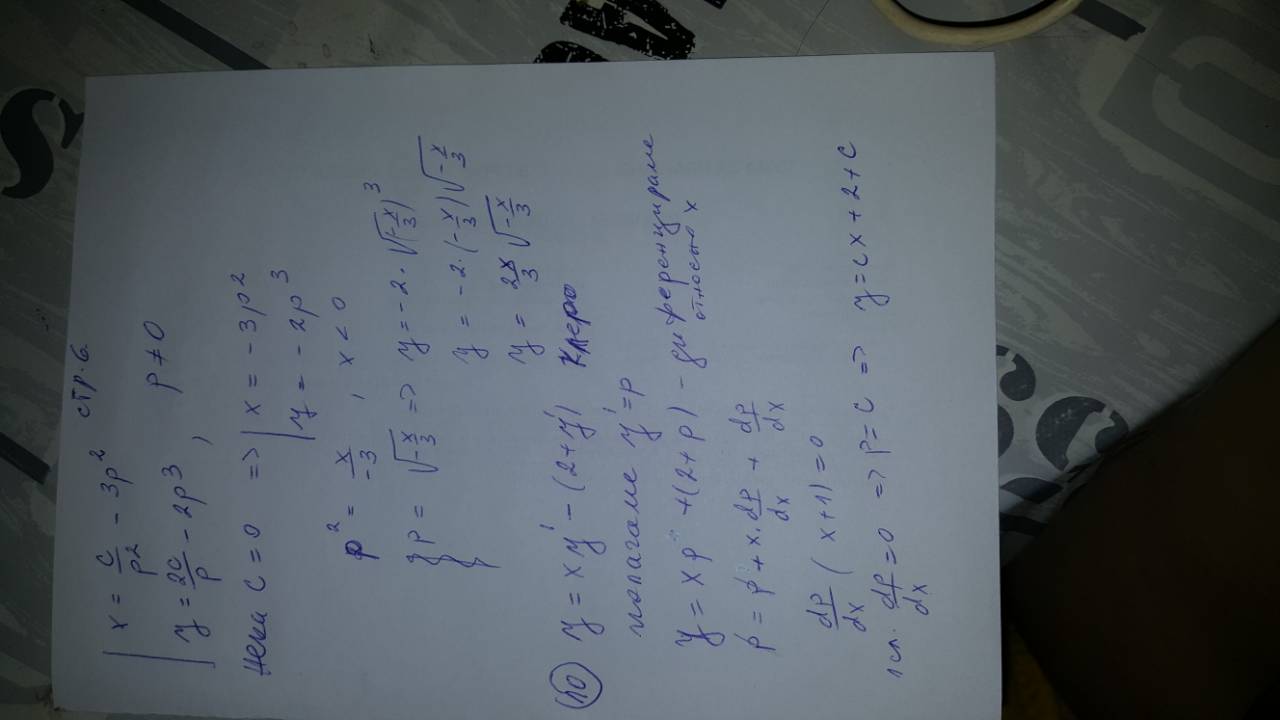 стр. 6.
x = c/p² - 3p²
y = 2c/p - 2p³, p ≠ 0
Нека c = 0 => x = -3p²
y = -2p³
p² = x/-3 , x < 0
p = √(-x/3) => y = -2 · √(-x/3)³
y = -2 · (-x/3) √(-x/3)
y = 2x/3 √(-x/3)
10 y = xy' - (2+y') Клеро
полагаме y' = p
y = xp + (2+p) - диференцираме
относно x
p = p + x · dp/dx + dp/dx
dp/dx (x+1) = 0
1 сл. dp/dx = 0 => p = c => y = cx + 2 + c